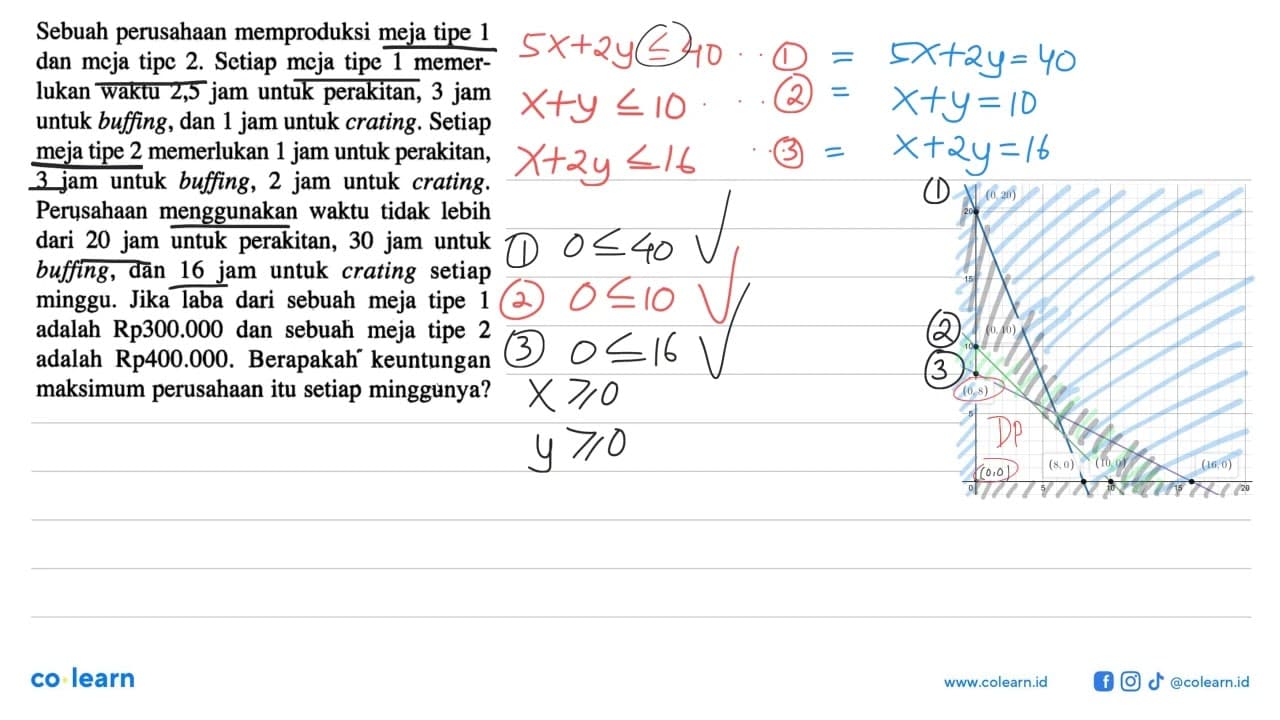 Sebuah perusahaan memproduksi meja tipe 1
dan meja tipe 2. Setiap meja tipe 1 memer-
lukan waktu 2,5 jam untuk perakitan, 3 jam
untuk buffing, dan 1 jam untuk crating. Setiap
meja tipe 2 memerlukan 1 jam untuk perakitan,
3 jam untuk buffing, 2 jam untuk crating.
Perusahaan menggunakan waktu tidak lebih
dari 20 jam untuk perakitan, 30 jam untuk
buffing, dan 16 jam untuk crating setiap
minggu. Jika laba dari sebuah meja tipe 1
adalah Rp300.000 dan sebuah meja tipe 2
adalah Rp400.000. Berapakah keuntungan
maksimum perusahaan itu setiap minggunya?
5x+2y ≤ 40 ... ① = 5x+2y=40
x+y ≤ 10 ... ② = x+y=10
x+2y ≤ 16 ... ③ = x+2y=16
① 0 ≤ 40 ✓
② 0 ≤ 10 ✓
③ 0 ≤ 16 ✓
x ⩾ 0
y ⩾ 0
①
(0, 20)
20
15
②
(0, 10)
10
③
(0, 8)
5
DP
(0,0)
(8, 0)
(10, 0)
(16, 0)
0 5 10 15 20
co·learn
www.colearn.id
@colearn.id